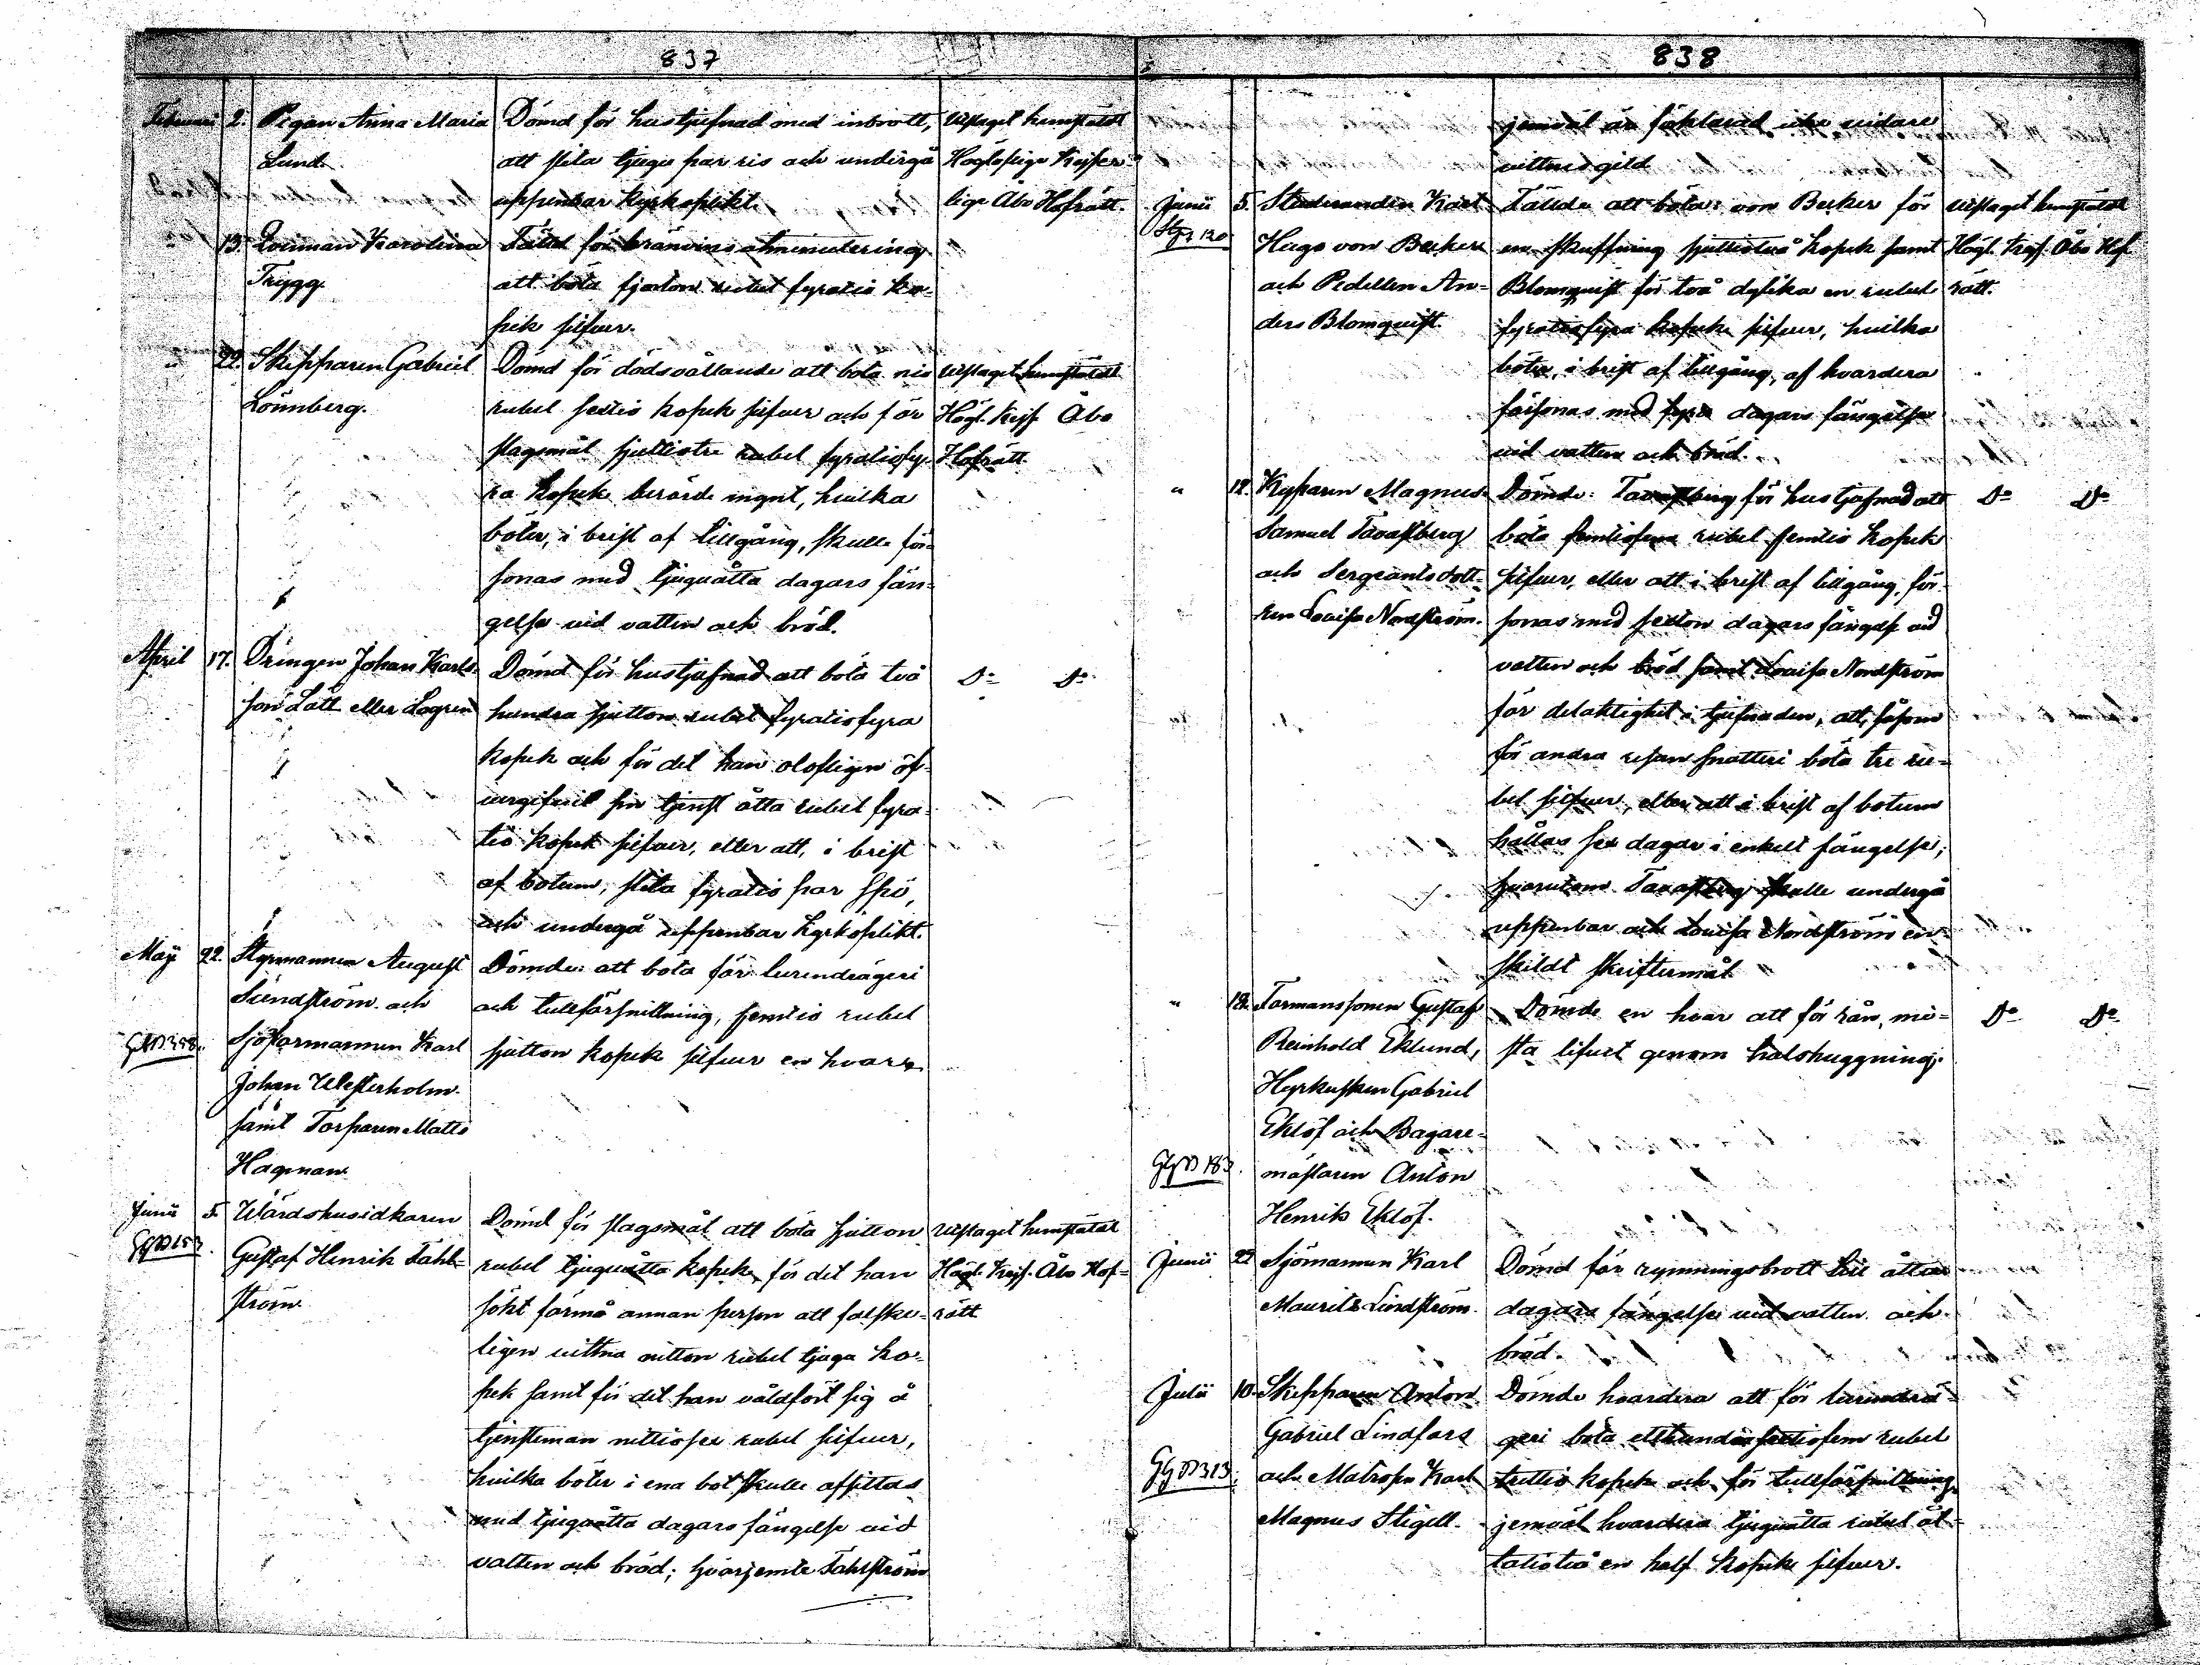 837
Februari 2. Pigan Anna Maria
Lund.
Dömd för hustjufnad med inbrott,
att slita tjugu par ris och undergå
uppenbar kyrkoplikt.
Utslaget hemstäldt
Höglofliga Kejser-
liga Åbo Hofrätt.
13. Qvinnan Karolina
Trygg.
Fälld för bränvins utminutering
att böta fjorton rubel fyratio ko-
pek silfver.
" 22. Skepparen Gabriel
Lönnberg.
Dömd för dödsvållande att böta nio
rubel sextio kopek silfver och för
slagsmål sjuttiotre rubel fyratiofy-
ra kopek berörde mynt, hvilka
böter, i brist af tillgång, skulle för-
sonas med tjuguåtta dagars fän-
gelse vid vatten och bröd.
Utslaget hemstäldt
Högl. Kejs. Åbo
Hofrätt.
April 17. Drängen Johan Karls-
son Lätt eller Lagren
Dömd för hustjufnad att böta två
hundra sjutton rubel fyratiofyra
kopek och för det han olofligen öf-
vergifvit sin tjenst åtta rubel fyra-
tio kopek silfver, eller att, i brist
af botum, slita fyratio par spö,
och undergå uppenbar kyrkoplikt.
Do Do
Maji 22. Styrmannen August
Sundström och
Sjöfarmannen Karl
Johan Westerholm
samt Torparen Matts
Hagman.
Dömde: att böta för lurendrägeri
och tullförsnillning, femtio rubel
sjutton kopek silfver en hvar.
Junii 5. Wärdshusidkaren
Gustaf Henrik Fahl-
ström.
Dömd för slagsmål att böta sjutton
rubel tjuguåtta kopek, för det han
sökt förmå annan person att falske-
ligen vittna nitton rubel tjugu ko-
pek samt för det han våldfört sig å
tjensteman nittiosex rubel silfver,
hvilka böter i ena bot skulle afsittas
med tjuguåtta dagars fängelse vid
vatten och bröd; hvarjemte Fahlström
Utslaget hemstäldt
Högl. Kejs. Åbo Hof-
rätt
838
jemväl är förklarad icke vidare
vittnesgild
Junii 5. Studeranden Karl
Hugo von Becker
och Pedellen An-
ders Blomquist.
Fällde att böta: von Becker för
en skuffning sjuttiotvå kopek samt
Blomquist för två dylika en rubel
fyratiofyra kopek silfver, hvilka
böter, i brist af tillgång, af hvardera
försonas med fyra dagars fängelse
vid vatten och bröd.
Utslaget hemstäldt
Högl. Kejs. Åbo Hof
rätt.
" 12. Kyparen Magnus
Samuel Tavastberg
och Sergeantsdott-
ren Lovisa Nordström.
Dömde: Tavastberg för hustjufnad att
böta femtiofem rubel femtio kopek
silfver, eller att i brist af tillgång, för-
sonas med sexton dagars fängelse vid
vatten och bröd samt Lovisa Nordström
för delaktighet i tjufnaden, att, såsom
för andra resan snatteri böta tre ru-
bel silfver, eller att i brist af botum
hållas sex dagar i enkelt fängelse;
hvarutom Tavastberg skulle undergå
uppenbar och Lovisa Nordström en-
skildt skriftermål
Do Do
" 18. Formanssonen Gustaf
Reinhold Eklund,
Hyrkusken Gabriel
Eklöf och Bagare-
mästaren Anton
Henrik Eklöf.
Dömde en hvar att för rån, mi-
sta lifvet genom halshuggning.
Do Do
Junii 22 Sjömannen Karl
Maurits Lindström.
Dömd för rymningsbrott till åtta
dagars fängelse vid vatten och
bröd.
Julii 10. Skepparen Anton
Gabriel Lindfors
och Matrosen Karl
Magnus Stigell.
Dömde hvardera att för lurendrä-
geri böta etthundrasextiofem rubel
trettio kopek och för tullförsnillning
jemväl hvardera tjuguåtta rubel åt-
tatiotvå en half kopek silfver.